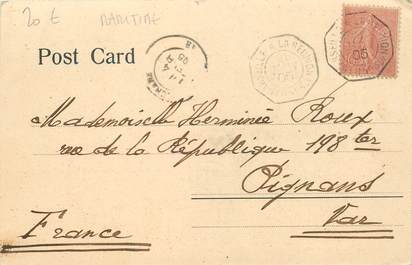 20 € MARITIME
Post Card
MARSEILLE A LA REUNION
05
Mademoiselle Herminie Roux
rue de la République 198 ter
Pignans
Var
France